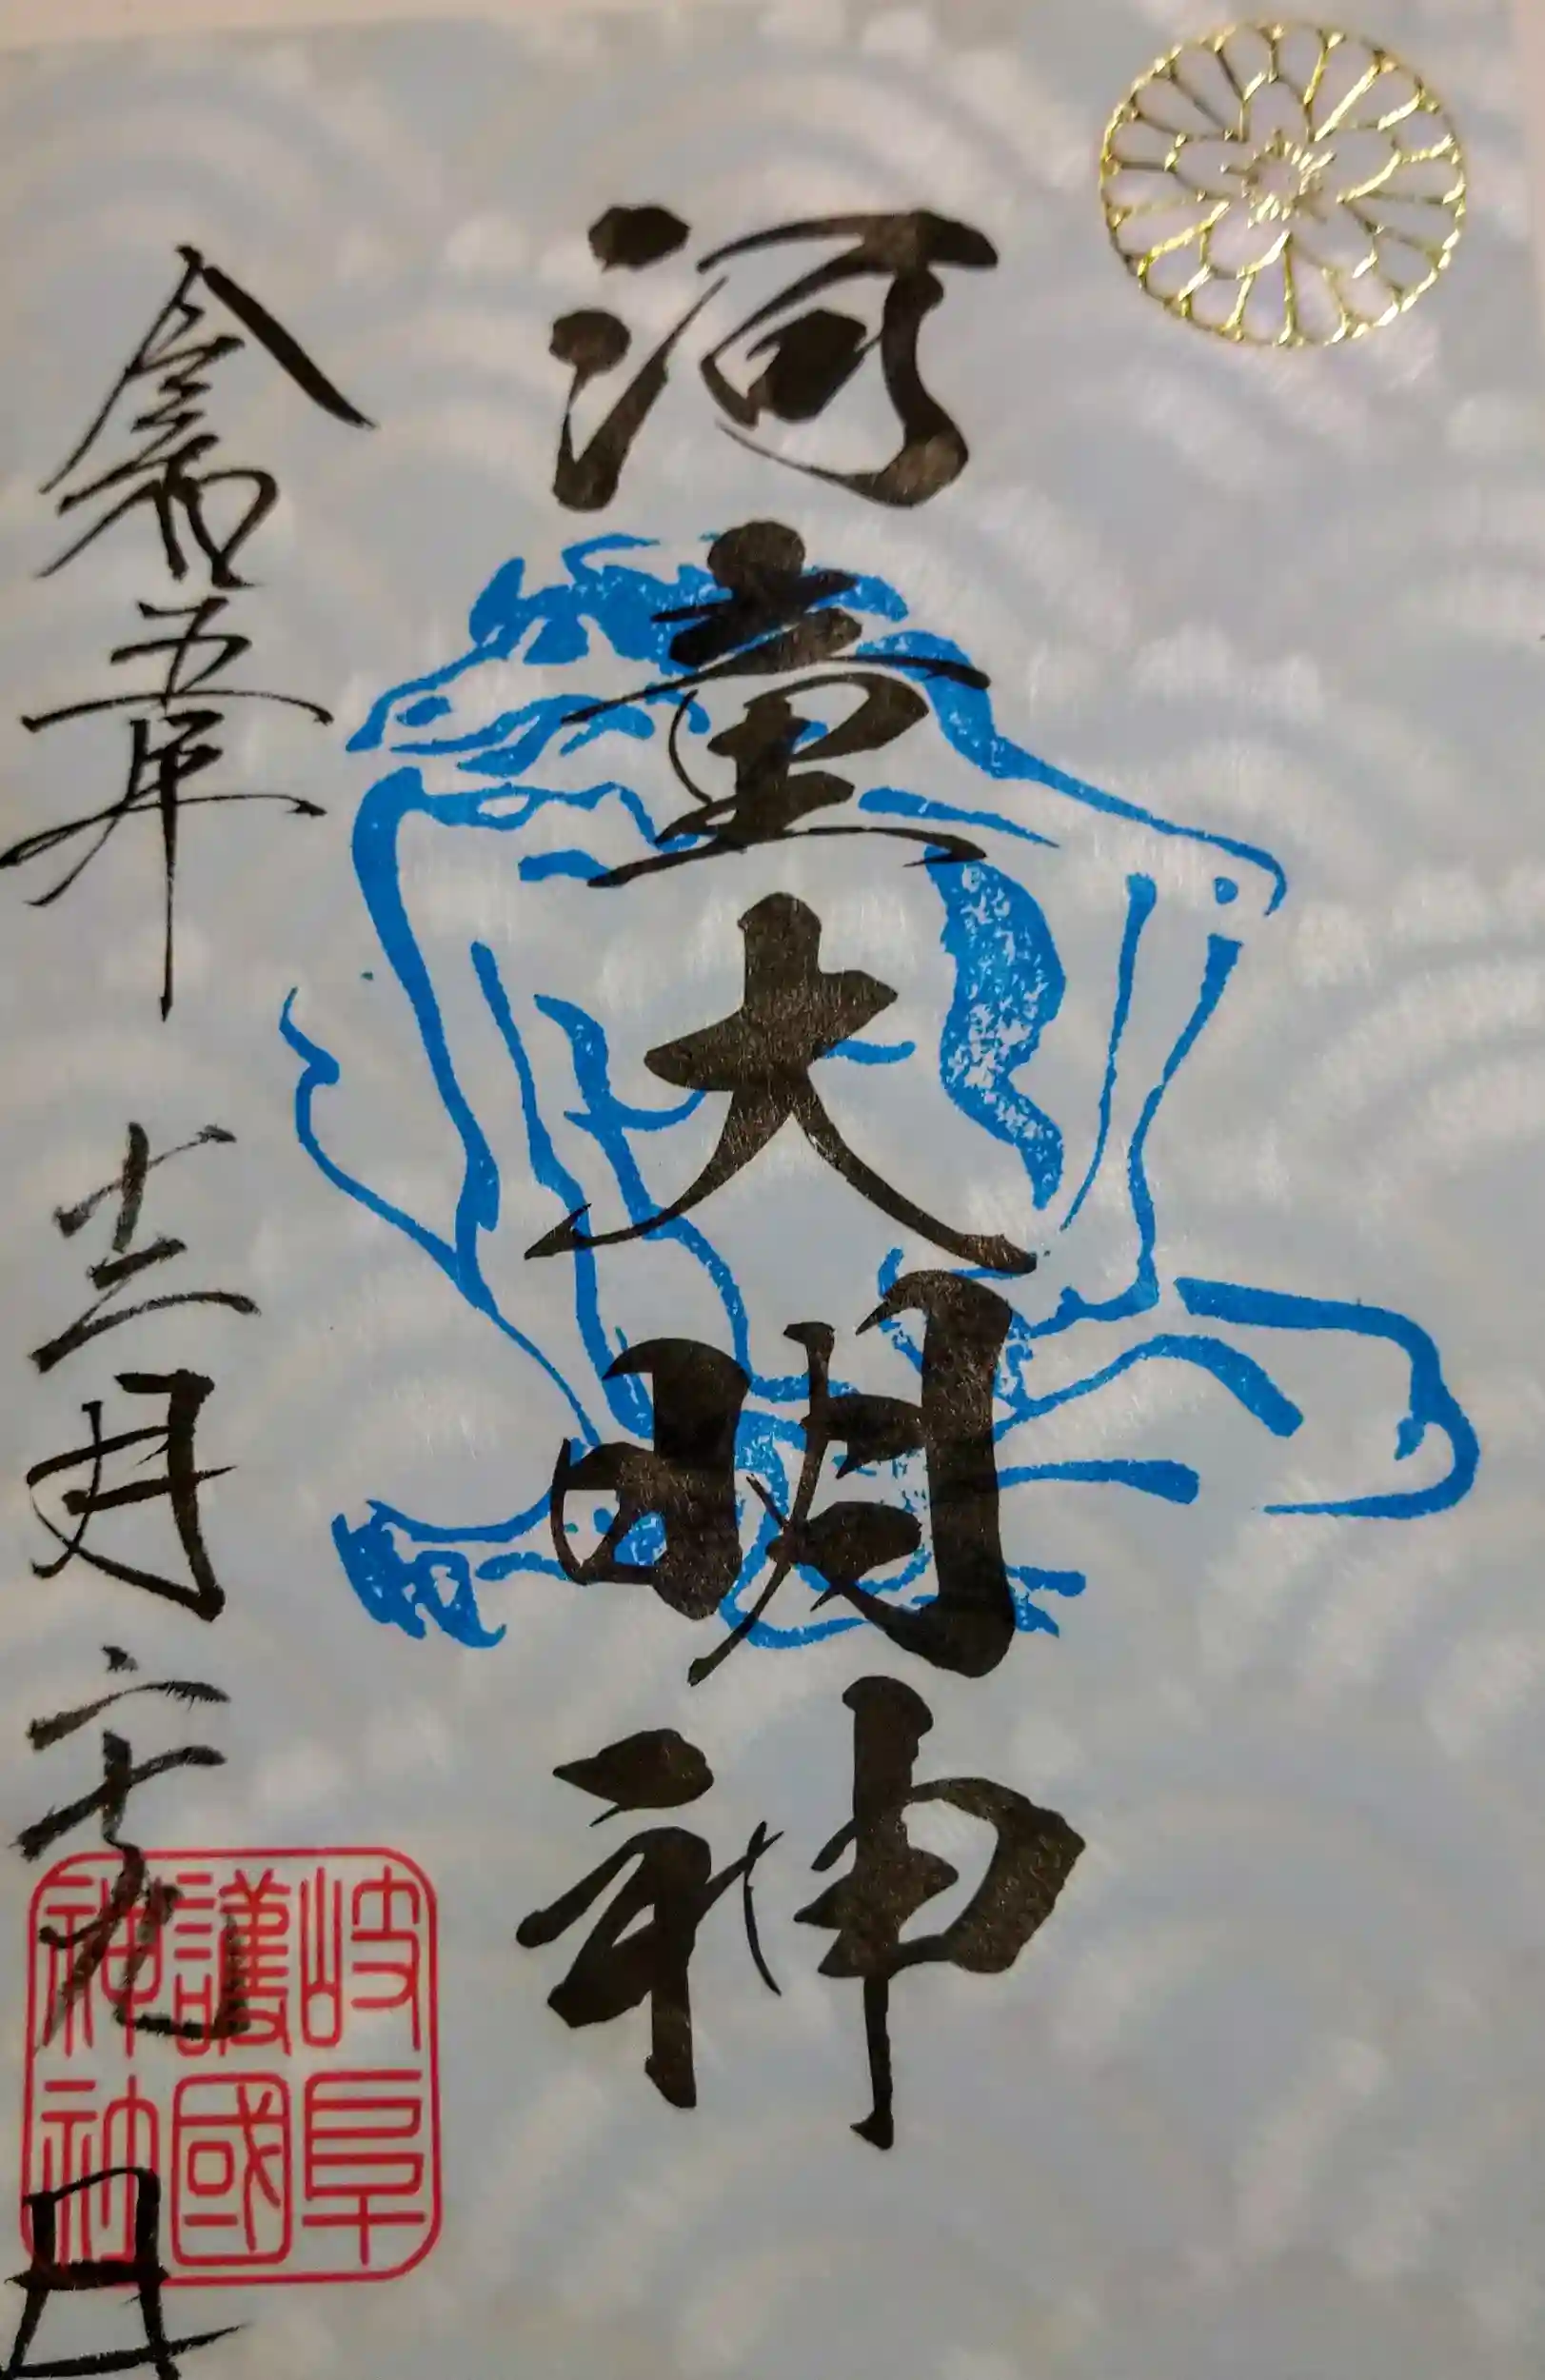 河童大明神
令和五年十二月二十九日
岐阜護國神社